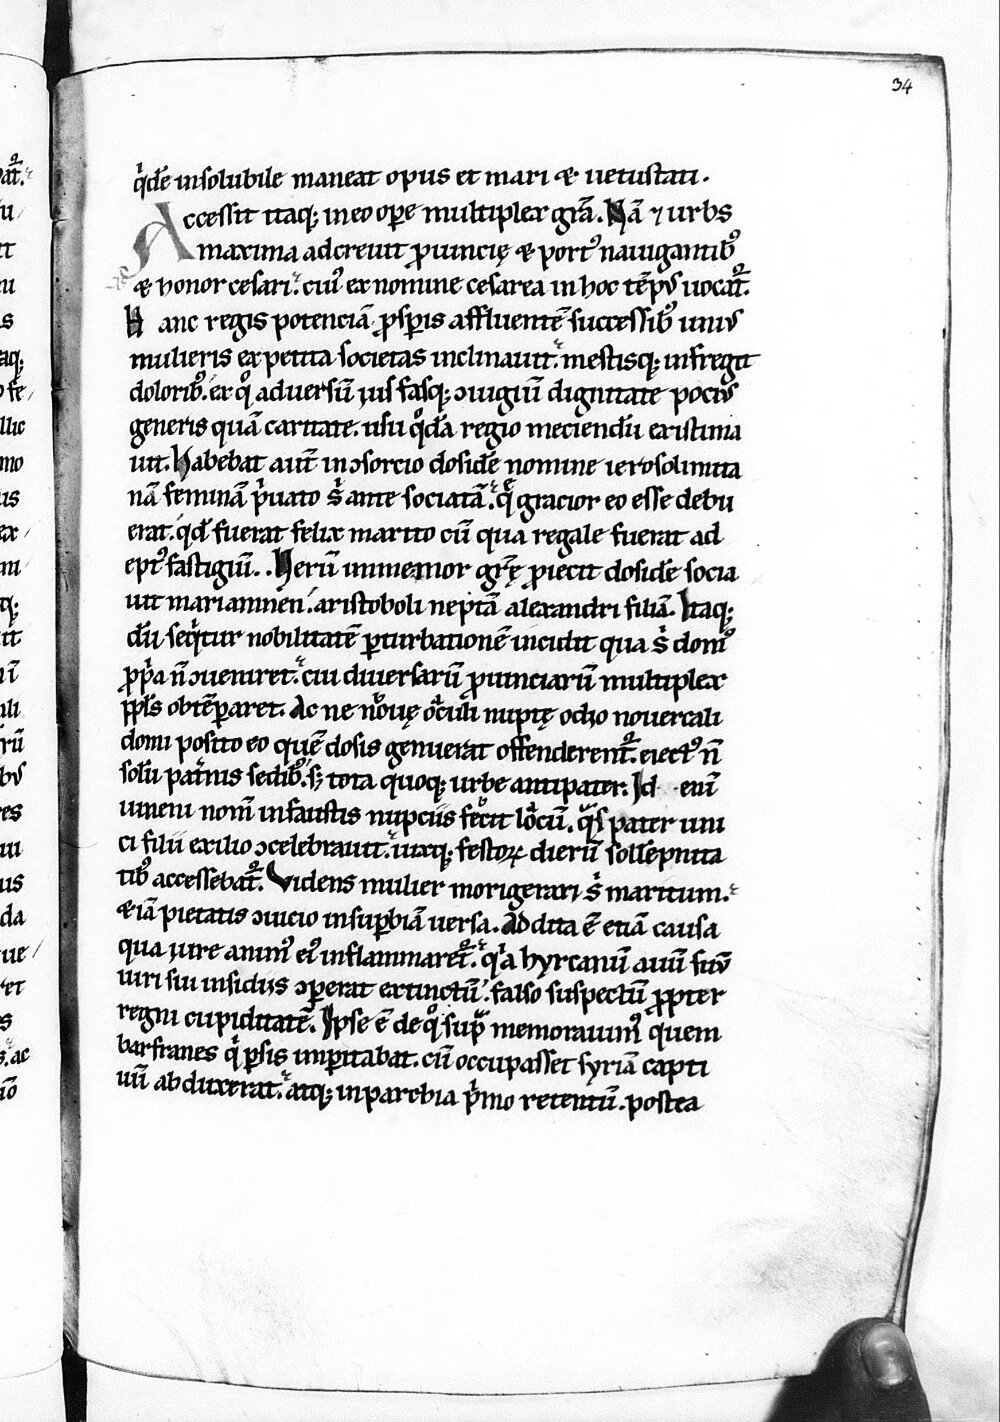 34
q̇dē insolubile maneat opus et mari & uetustati.
Accessit itaq; in eo ope multiplex grā. Nā ⁊ urbs
maxima adcreuit ꝓuincię & port᷒ nauigantib᷒
& honor cesari. cui᷒ ex nomine cesarea in hoc tēpus uocat᷒.
Hanc regis potenciā ꝓspis affluentē successib᷒ unius
mulieris expetita societas inclinauit. mestisq; infregit
dolorib᷒. ex q̊ aduersū ius fasq; ɔiugiū dignitate pocius
generis quā caritate. usu q̊dā regio meciendū existima
uit. Habebat autē in ɔsorcio dosidē nomine ierosolimita
nā feminā p̍uato s̄ ante sociatā. q̄ gracior eo esse debu
erat. q̇d fuerat felix marito cū qua regale fuerat ad
ept᷒ fastigiū. Herū immemor grē̄ ꝓiecit dosidē socia
uit mariamnen. aristoboli neptā alexandri filiā. Itaq;
dū seq̇tur nobilitatē pturbationē incidit qua s̄ dom᷒
ꝓp̍a n̄ ɔueniret. cui diuersarū ꝓuinciarū multiplex
ppl̄s obtēparet. Ac ne nouę oc̄uli nuptę odio nouercali
domi posito eo quē dosis genuerat offenderent᷒. eiect᷒ n̄
solū pat̄nis sedib᷒. s; tota quoq; urbe antipater. Id enī
iuueni nom̄ infaustis nupciis fecit locū. q̄si pater uni
ci filii exilio ɔcelebrauit. uixq; festoꝝ dierū sollēpnita
tib᷒ accessebat᷒. Videns mulier morigerari s̄ maritum.
& iā pietatis ɔuicio insupbiā uersa. Addita ē etiā causa
qua iure anim᷒ ei᷒ inflammaret᷒. q̇a hyrcanū auū suū
uiri sui insidiis ɔperat extinctū. falso suspectū ꝓpter
regni cupiditatē. Ipse ē de q̊ sup̄ memorauim᷒ quem
barfranes q̇ psis impitabat. cū occupasset syriā capti
uū abduxerat. atq; in parthia p̍mo retentū. postea